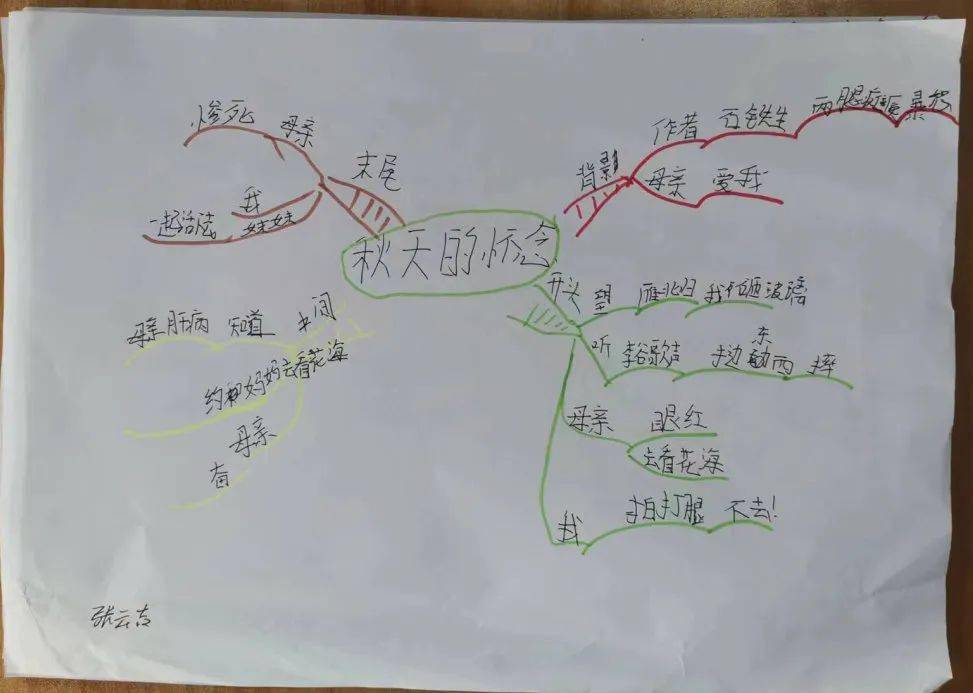 秋天的怀念
背景
作者 石铁生 两腿
母亲 爱我
开头
望 雁北归 我 砸玻璃
听 李谷 歌声 手边 东西 摔
母亲 眼红
去看花海
我 拍打腿 不去!
中间
母亲肝病 知道
约和妈妈去看花海
母亲
末尾
母亲 惨死
我
妹妹 一起活
张云吉